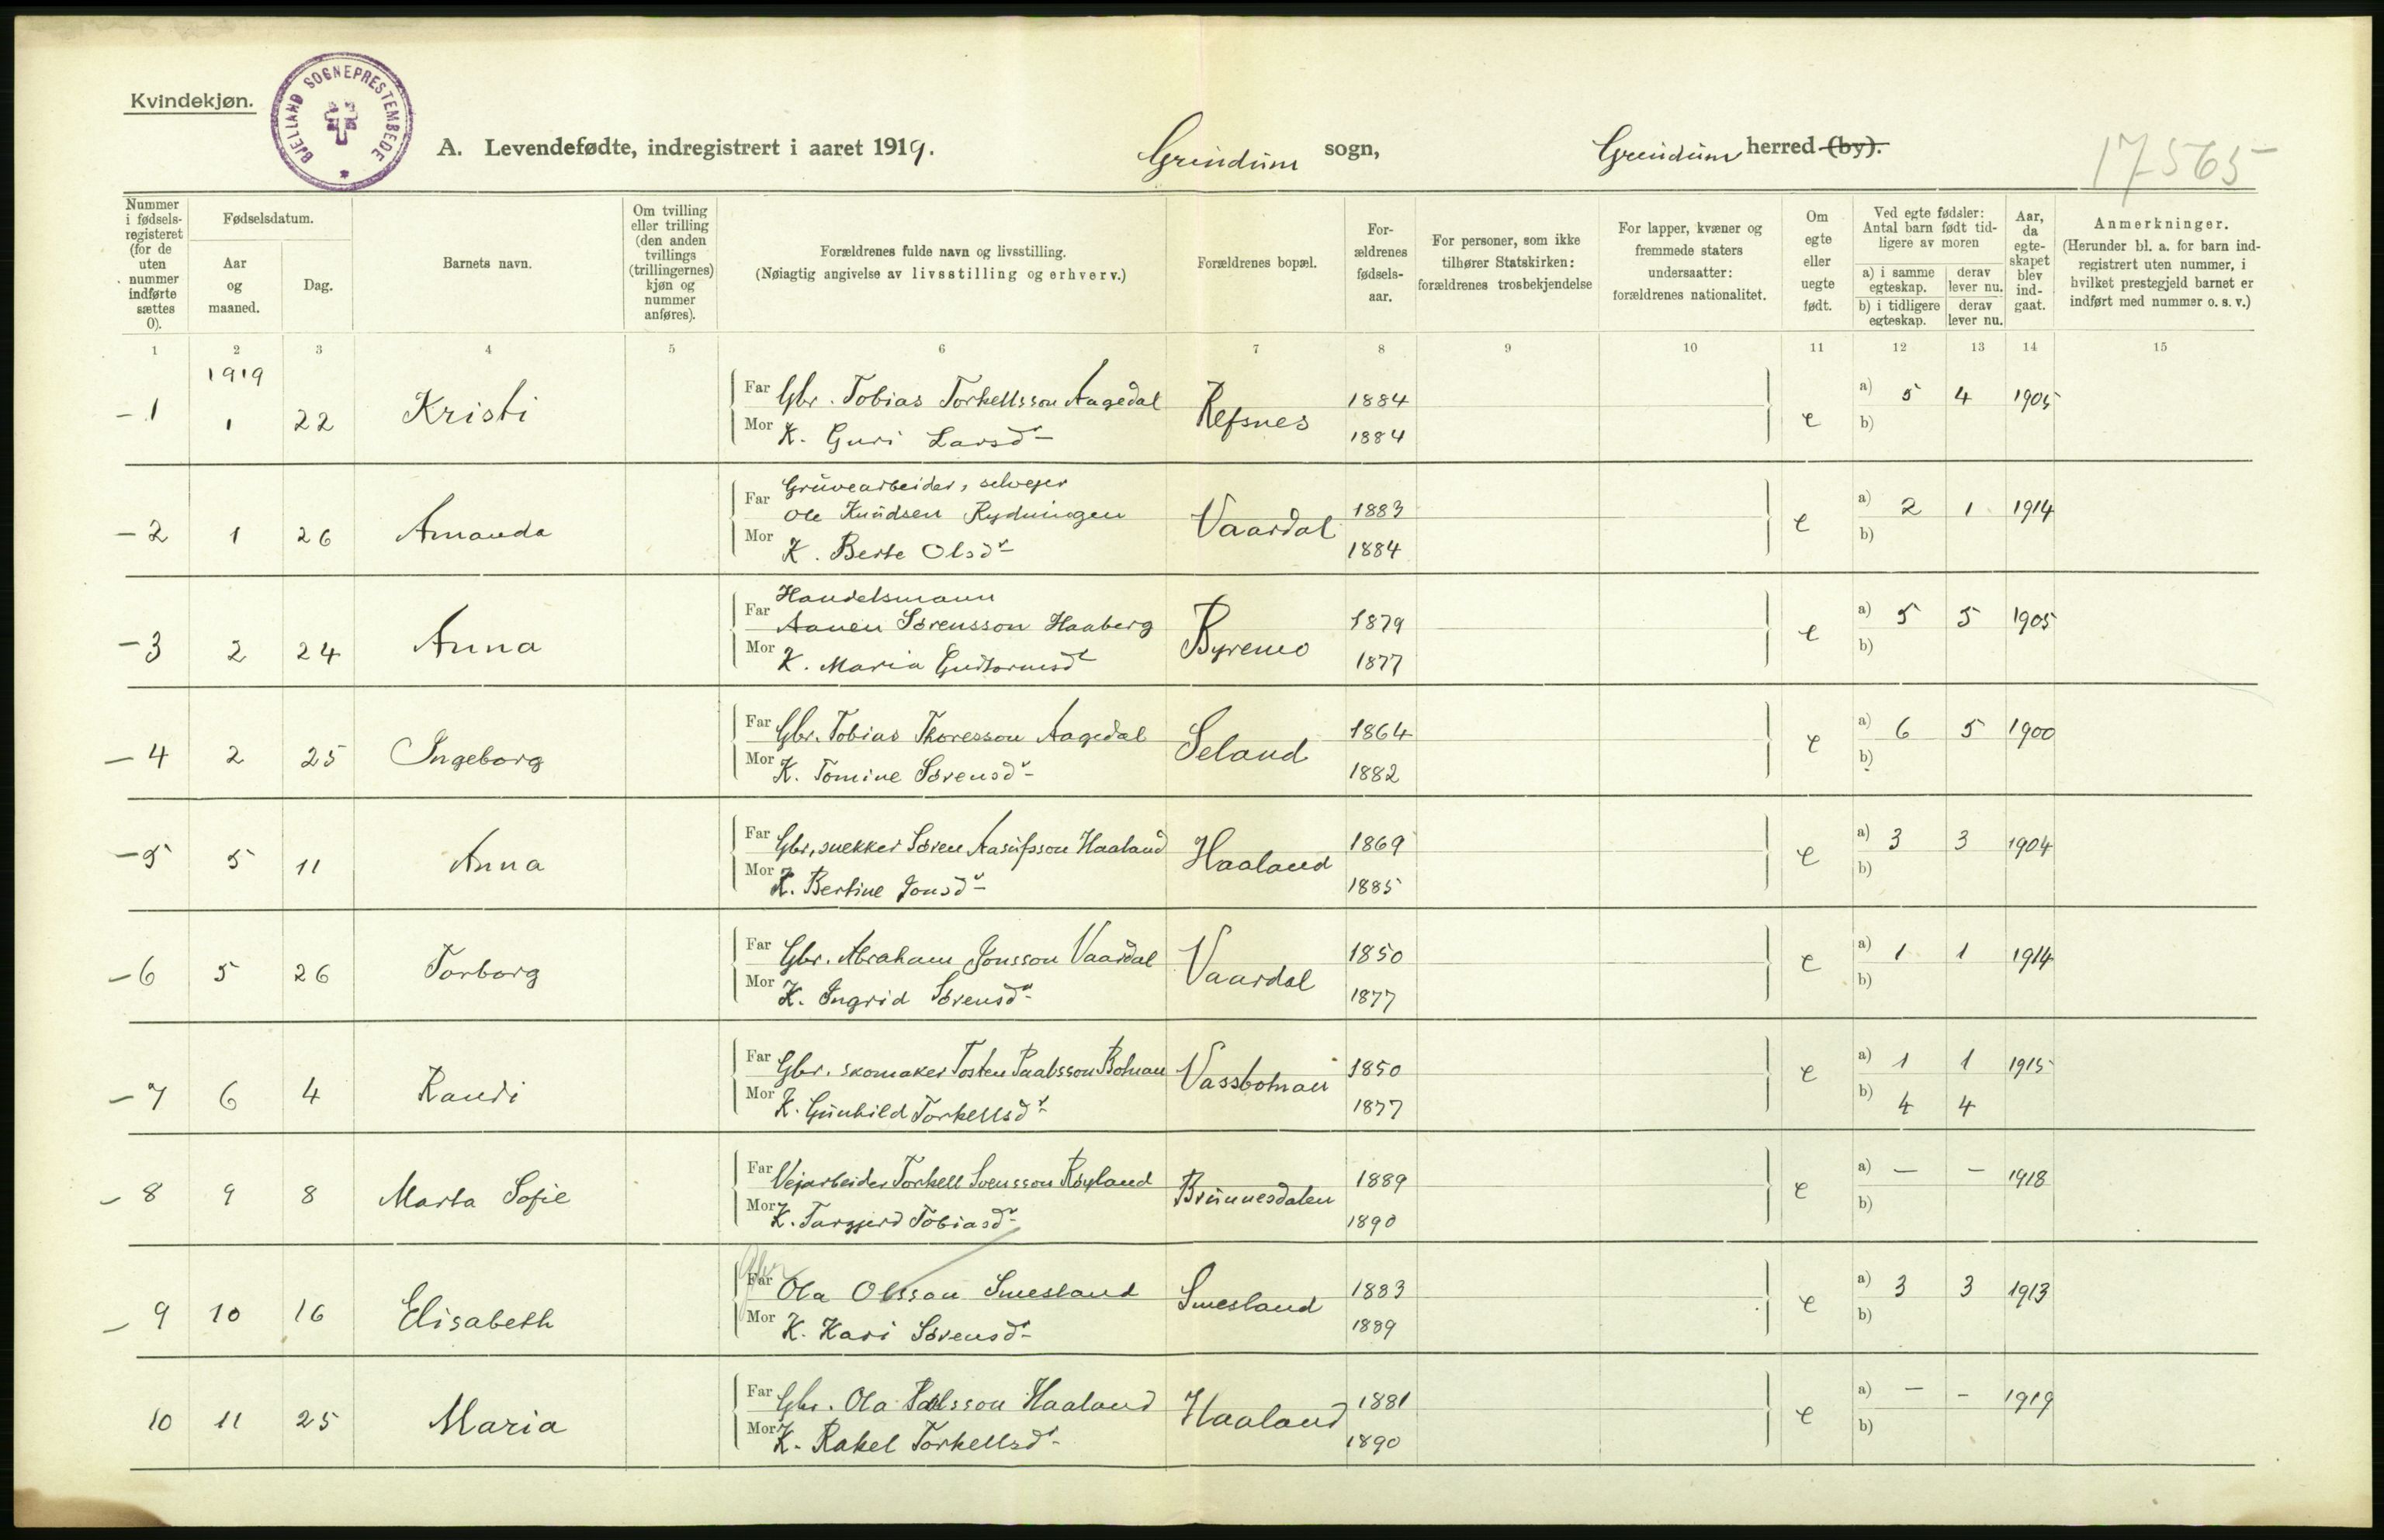 Kvindekjøn.
BJELLAND SOGNEPRESTEMBEDE
A. Levendefødte, indregistrert i aaret 1919. Grindum sogn, Grindum herred (by).
17565
Nummer i fødsels-registeret (for de uten nummer indførte sættes 0).
Fødselsdatum.
Aar og maaned.
Dag.
Barnets navn.
Om tvilling eller trilling (den anden tvillings (trillingernes) kjøn og nummer anføres).
Forældrenes fulde navn og livsstilling.
(Nøiagtig angivelse av livsstilling og erhverv.)
Forældrenes bopæl.
For-ældrenes fødsels-aar.
For personer, som ikke tilhører Statskirken: forældrenes trosbekjendelse
For lapper, kvæner og fremmede staters undersaatter: forældrenes nationalitet.
Om egte eller uegte født.
Ved egte fødsler: Antal barn født tid-ligere av moren
a) i samme egteskap. derav lever nu.
b) i tidligere egteskap. derav lever nu.
Aar, da egte-skapet blev ind-gaat.
Anmerkninger.
(Herunder bl. a. for barn ind-registrert uten nummer, i hvilket prestegjeld barnet er indført med nummer o. s. v.)
1 2 3 4 5 6 7 8 9 10 11 12 13 14 15
1919
– 1 1 22 Kristi Far Gbr. Tobias Torkellsson Aagedal Refsnes 1884 e a) 5 4 1905
Mor K. Guri Larsdr 1884 b)
Gruvearbeider, selveger
– 2 1 26 Amanda Far Ole Knudsen Rydningen Vaardal 1883 e a) 2 1 1914
Mor K. Berte Olsdr 1884 b)
Handelsmann
– 3 2 24 Anna Far Aanen Sørensson Haaberg Byremo 1879 e a) 5 5 1905
Mor K. Maria Guttormsdr 1877 b)
– 4 2 25 Ingeborg Far Gbr. Tobias Thoresson Aagedal Seland 1864 e a) 6 5 1900
Mor K. Tomine Sørensdr 1882 b)
– 5 5 11 Anna Far Gbr, snekker Søren Aasulfsson Haaland Haaland 1869 e a) 3 3 1904
Mor K. Bertine Jonsdr 1885 b)
– 6 5 26 Torborg Far Gbr. Abraham Jonsson Vaardal Vaardal 1850 e a) 1 1 1914
Mor K. Ingrid Sørensdr 1877 b)
– 7 6 4 Randi Far Gbr. skomaker Tosten Paalsson Botnan Vassbotnan 1850 e a) 1 1 1915
Mor K. Gunhild Torkellsdr 1877 b) 4 4
– 8 9 8 Marta Sofie Far Vejarbeider Torkell Svensson Røyland Brunnesdalen 1889 e a) – – 1918
Mor K. Targjerd Tobiasdr 1890 b)
Gbr
– 9 10 16 Elisabeth Far Ola Olsson Smesland Smesland 1883 e a) 3 3 1913
Mor K. Kari Sørensdr 1889 b)
10 11 25 Maria Far Gbr. Ola Paalsson Haaland Haaland 1881 e a) – – 1919
Mor K. Rakel Torkellsdr 1890 b)